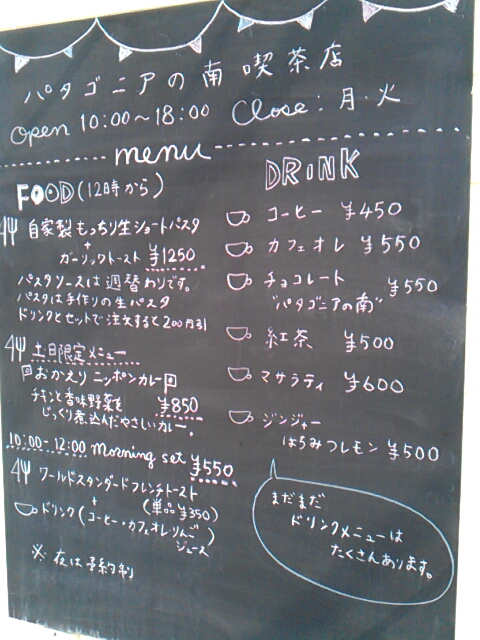 パタゴニアの南 喫茶店
Open 10:00〜18:00 Close: 月・火
menu
FOOD(12時から)
自家製もっちり生ショートパスタ
+
ガーリックトースト ¥1250
パスタソースは週替わりです。
パスタは手作りの生パスタ
ドリンクとセットで注文すると200円引
土日限定メニュー
おかえりニッポンカレー
チキンと香味野菜を ¥850
じっくり煮込んだやさしいカレー。
10:00-12:00 Morning set ¥550
ワールドスタンダードフレンチトースト
+ (単品¥350)
ドリンク(コーヒー・カフェオレ・りんご
ジュース)
※夜は予約制
DRINK
コーヒー ¥450
カフェオレ ¥550
チョコレート ¥550
"パタゴニアの南"
紅茶 ¥500
マサラティ ¥600
ジンジャー
はちみつレモン ¥500
まだまだ
ドリンクメニューは
たくさんあります。